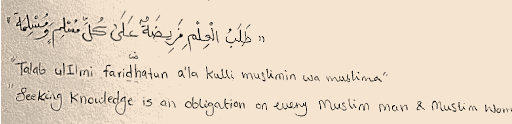 " طَلَبُ الْعِلْمِ فَرِيضَةٌ عَلَىٰ كُلِّ مُسْلِمٍ وَمُسْلِمَةٍ "
"Talab ulIlmi faridhatun a'la kulli muslimin wa muslima"
"Seeking knowledge is an obligation on every Muslim man & Muslim wom